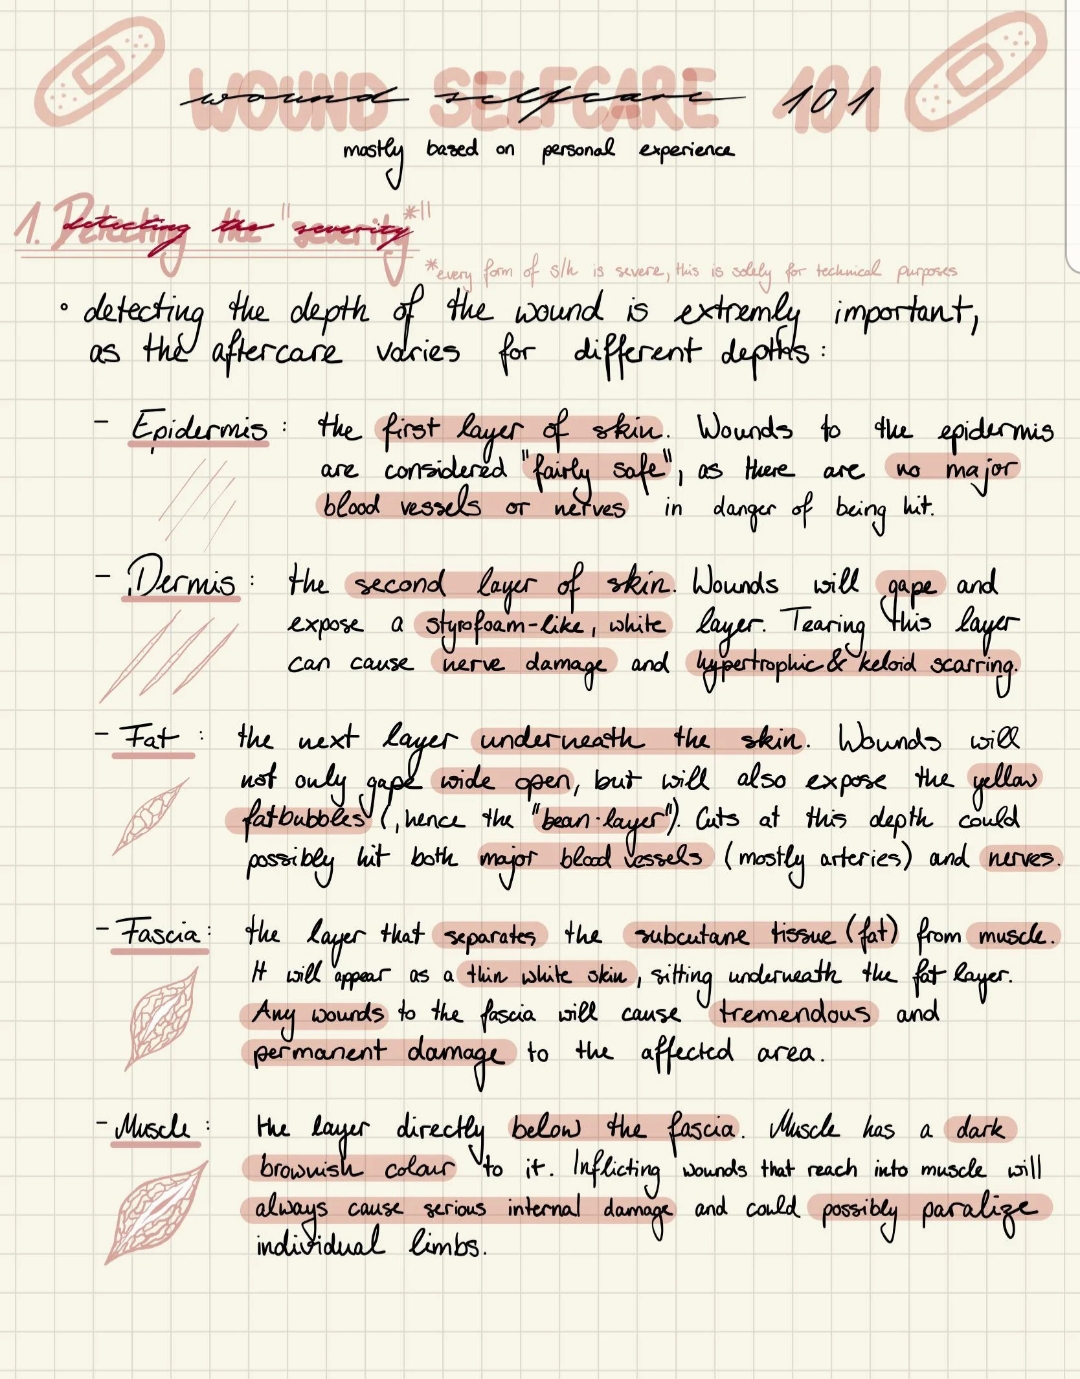 WOUND SELFCARE 101
wound selfcare 101
mostly based on personal experience
1. Detecting the "severity*"
detecting the severity
*every form of s/h is severe, this is solely for technical purposes
• detecting the depth of the wound is extremly important,
as the aftercare varies for different depths:
- Epidermis: the first layer of skin. Wounds to the epidermis
are considered "fairly safe", as there are no major
blood vessels or nerves in danger of being hit.
- Dermis: the second layer of skin. Wounds will gape and
expose a styrofoam-like, white layer. Tearing this layer
can cause nerve damage and hypertrophic & keloid scarring.
- Fat: the next layer underneath the skin. Wounds will
not only gape wide open, but will also expose the yellow
fatbubbles (, hence the "bean-layer"). Cuts at this depth could
possibly hit both major blood vessels (mostly arteries) and nerves.
- Fascia: the layer that separates the subcutane tissue (fat) from muscle.
It will appear as a thin white skin, sitting underneath the fat layer.
Any wounds to the fascia will cause tremendous and
permanent damage to the affected area.
- Muscle: the layer directly below the fascia. Muscle has a dark
brownish colour to it. Inflicting wounds that reach into muscle will
always cause serious internal damage and could possibly paralize
individual limbs.